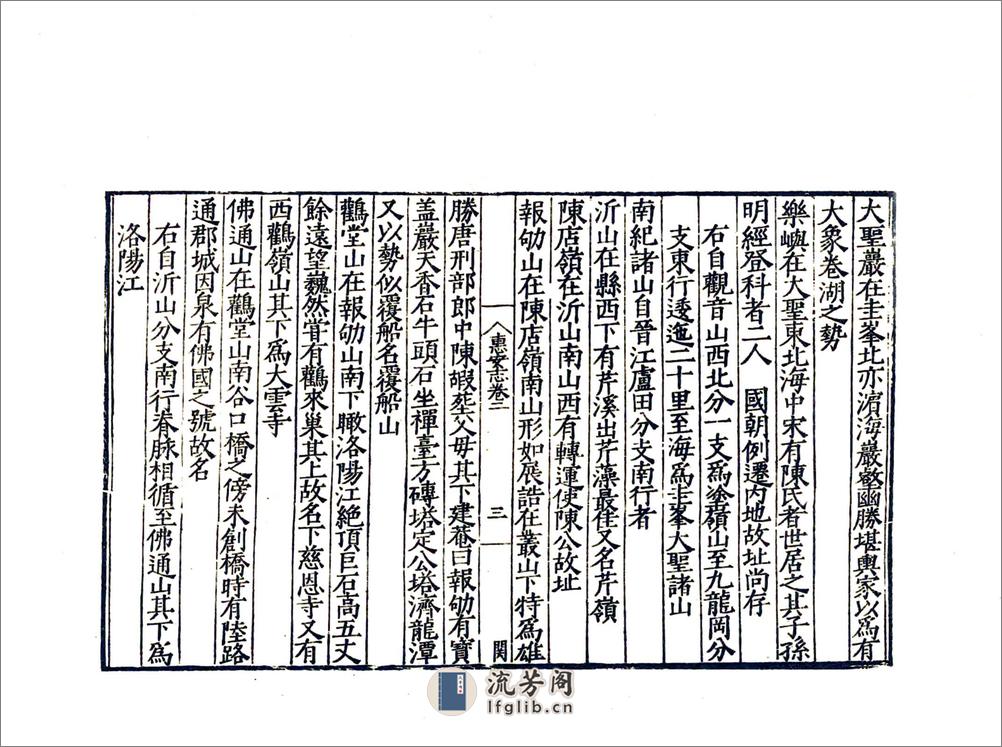 大聖巖在圭峯北亦濱海巖壑幽勝堪輿家以爲有
大象卷湖之勢
樂嶼在大聖東北海中宋有陳氏者世居之其子孫
明經登科者二人　國朝例遷內地故址尚存
右自觀音山西北分一支爲塗嶺山至九龍岡分
支東行逶迤二十里至海爲圭峯大聖諸山
南紀諸山自晉江盧田分支南行者
沂山在縣西下有芹溪出芹藻最佳又名芹嶺
陳店嶺在沂山南山西有轉運使陳公故址
報劬山在陳店嶺南山形如展誥在叢山下特爲雄
惠安志卷二
三
関
勝唐刑部郎中陳嘏塟父母其下建菴曰報劬有寶
盖巖天香石牛頭石坐禪臺方磚塔定公塔濟龍潭
又以勢似覆船名覆船山
鸛堂山在報劬山南下瞰洛陽江絕頂巨石高五丈
餘遠望巍然甞有鸛來巢其上故名下慈恩寺又有
西鸛嶺山其下爲大雲寺
佛通山在鸛堂山南谷口橋之傍未創橋時有陸路
通郡城因泉有佛國之號故名
右自沂山分支南行脊脉相循至佛通山其下爲
洛陽江
流芳阁
lfglib.cn